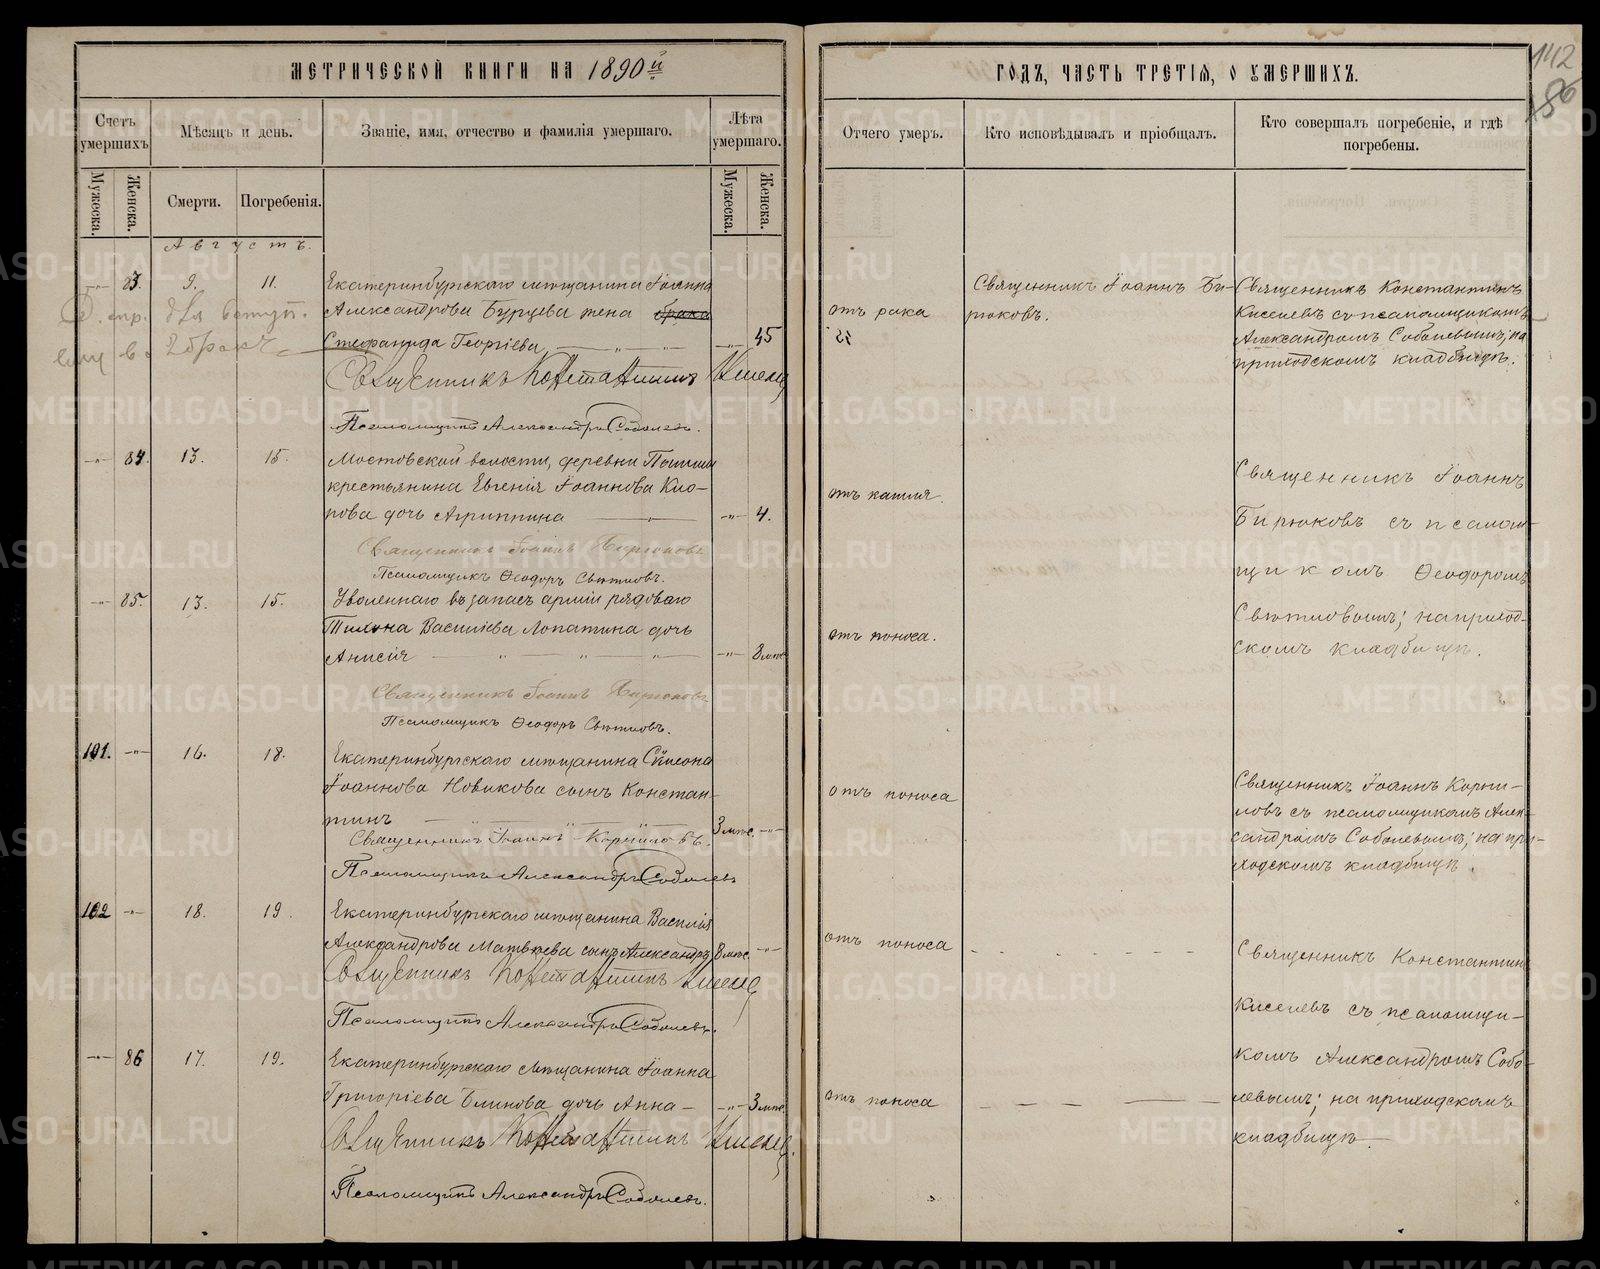 МЕТРИЧЕСКОЙ КНИГИ НА 1890й
ГОДЪ, ЧАСТЬ ТРЕТІЯ, О УМЕРШИХЪ.
142
Счетъ умершихъ
Мѣсяцъ и день.
Званіе, имя, отчество и фамилія умершаго.
Лѣта умершаго.
Отчего умеръ.
Кто исповѣдывалъ и пріобщалъ.
Кто совершалъ погребеніе, и гдѣ
погребены.
Мужеска.
Женска.
Смерти.
Погребенія.
Мужеска.
Женска.
Августъ.
83. 9. 11.
Екатеринбургскаго мѣщанина Іоанна
Александрова Бурцева жена
Стефанида Георгіева 45
Священникъ Константинъ
Псаломщикъ Александръ Соболевъ.
отъ рака
Священникъ Іоаннъ Би-
рюковъ.
Священникъ Константинъ
Киселевъ съ псаломщикомъ
Александромъ Соболевымъ; на
приходскомъ кладбищѣ.
84. 13. 15.
Мостовской волости, деревни
крестьянина Евгенія Іоаннова
рова дочь Агриппина 4.
Священникъ Іоаннъ Бирюковъ
Псаломщикъ Ѳеодоръ Свѣтловъ.
отъ кашля.
Священникъ Іоаннъ
Бирюковъ съ псалом-
щикомъ Ѳеодоромъ
Свѣтловымъ; на приход-
скомъ кладбищѣ.
85. 13. 15.
Уволеннаго въ запасъ арміи рядоваго
Тихона Василіева Лопатина дочь
Анисія 8 мѣс
Священникъ Іоаннъ Бирюковъ
Псаломщикъ Ѳеодоръ Свѣтловъ.
отъ поноса.
101. 16. 18.
Екатеринбургскаго мѣщанина Сѵмеона
Іоаннова Новикова сынъ Констан-
тинъ 3 мѣс.
Священникъ Іоаннъ Корниловъ.
Псаломщикъ Александръ Соболевъ
отъ поноса
Священникъ Іоаннъ Корни-
ловъ съ псаломщикомъ Алек-
сандромъ Соболевымъ; на при-
ходскомъ кладбищѣ.
102 18. 19.
Екатеринбургскаго мѣщанина Василія
Александрова Матвѣева сынъ Александръ 8 мѣс.
Священникъ Константинъ
Псаломщикъ Александръ Соболевъ.
отъ поноса
Священникъ Константинъ
Киселевъ съ псаломщи-
комъ Александромъ Собо-
левымъ; на приходскомъ
кладбищѣ.
86 17. 19.
Екатеринбургскаго мѣщанина Іоанна
Григоріева Блинова дочь Анна 3 мѣс
Священникъ Константинъ
Псаломщикъ Александръ Соболевъ.
отъ поноса
METRIKI.GASO-URAL.RU